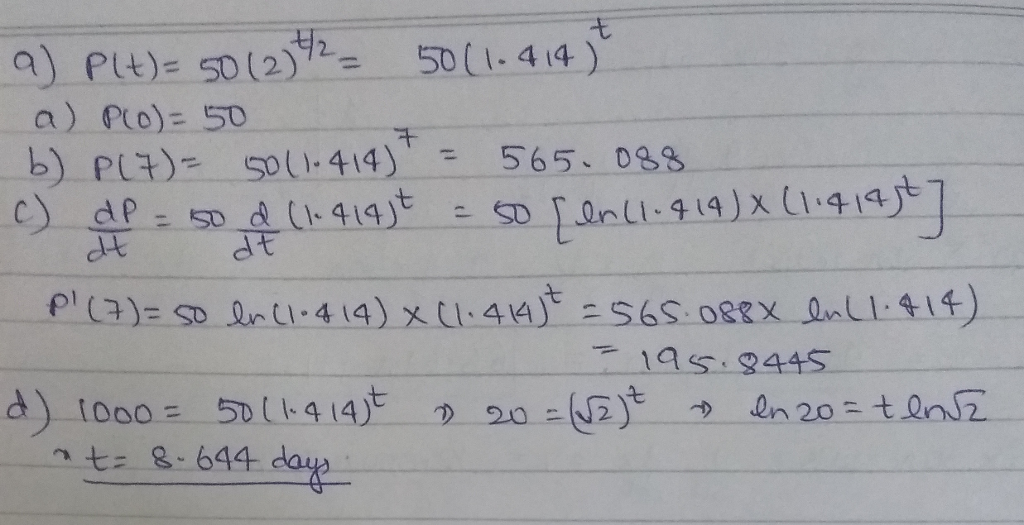 a) P(t) = 50(2)^{t/2} = 50(1.414)^t
a) P(0) = 50
b) P(7) = 50(1.414)^7 = 565.088
c) dP/dt = 50 d/dt (1.414)^t = 50 [ln(1.414) x (1.414)^t]
P'(7) = 50 ln(1.414) x (1.414)^t = 565.088 x ln(1.414)
= 195.8445
d) 1000 = 50(1.414)^t ⇒ 20 = (√2)^t ⇒ ln 20 = t ln√2
t = 8.644 days